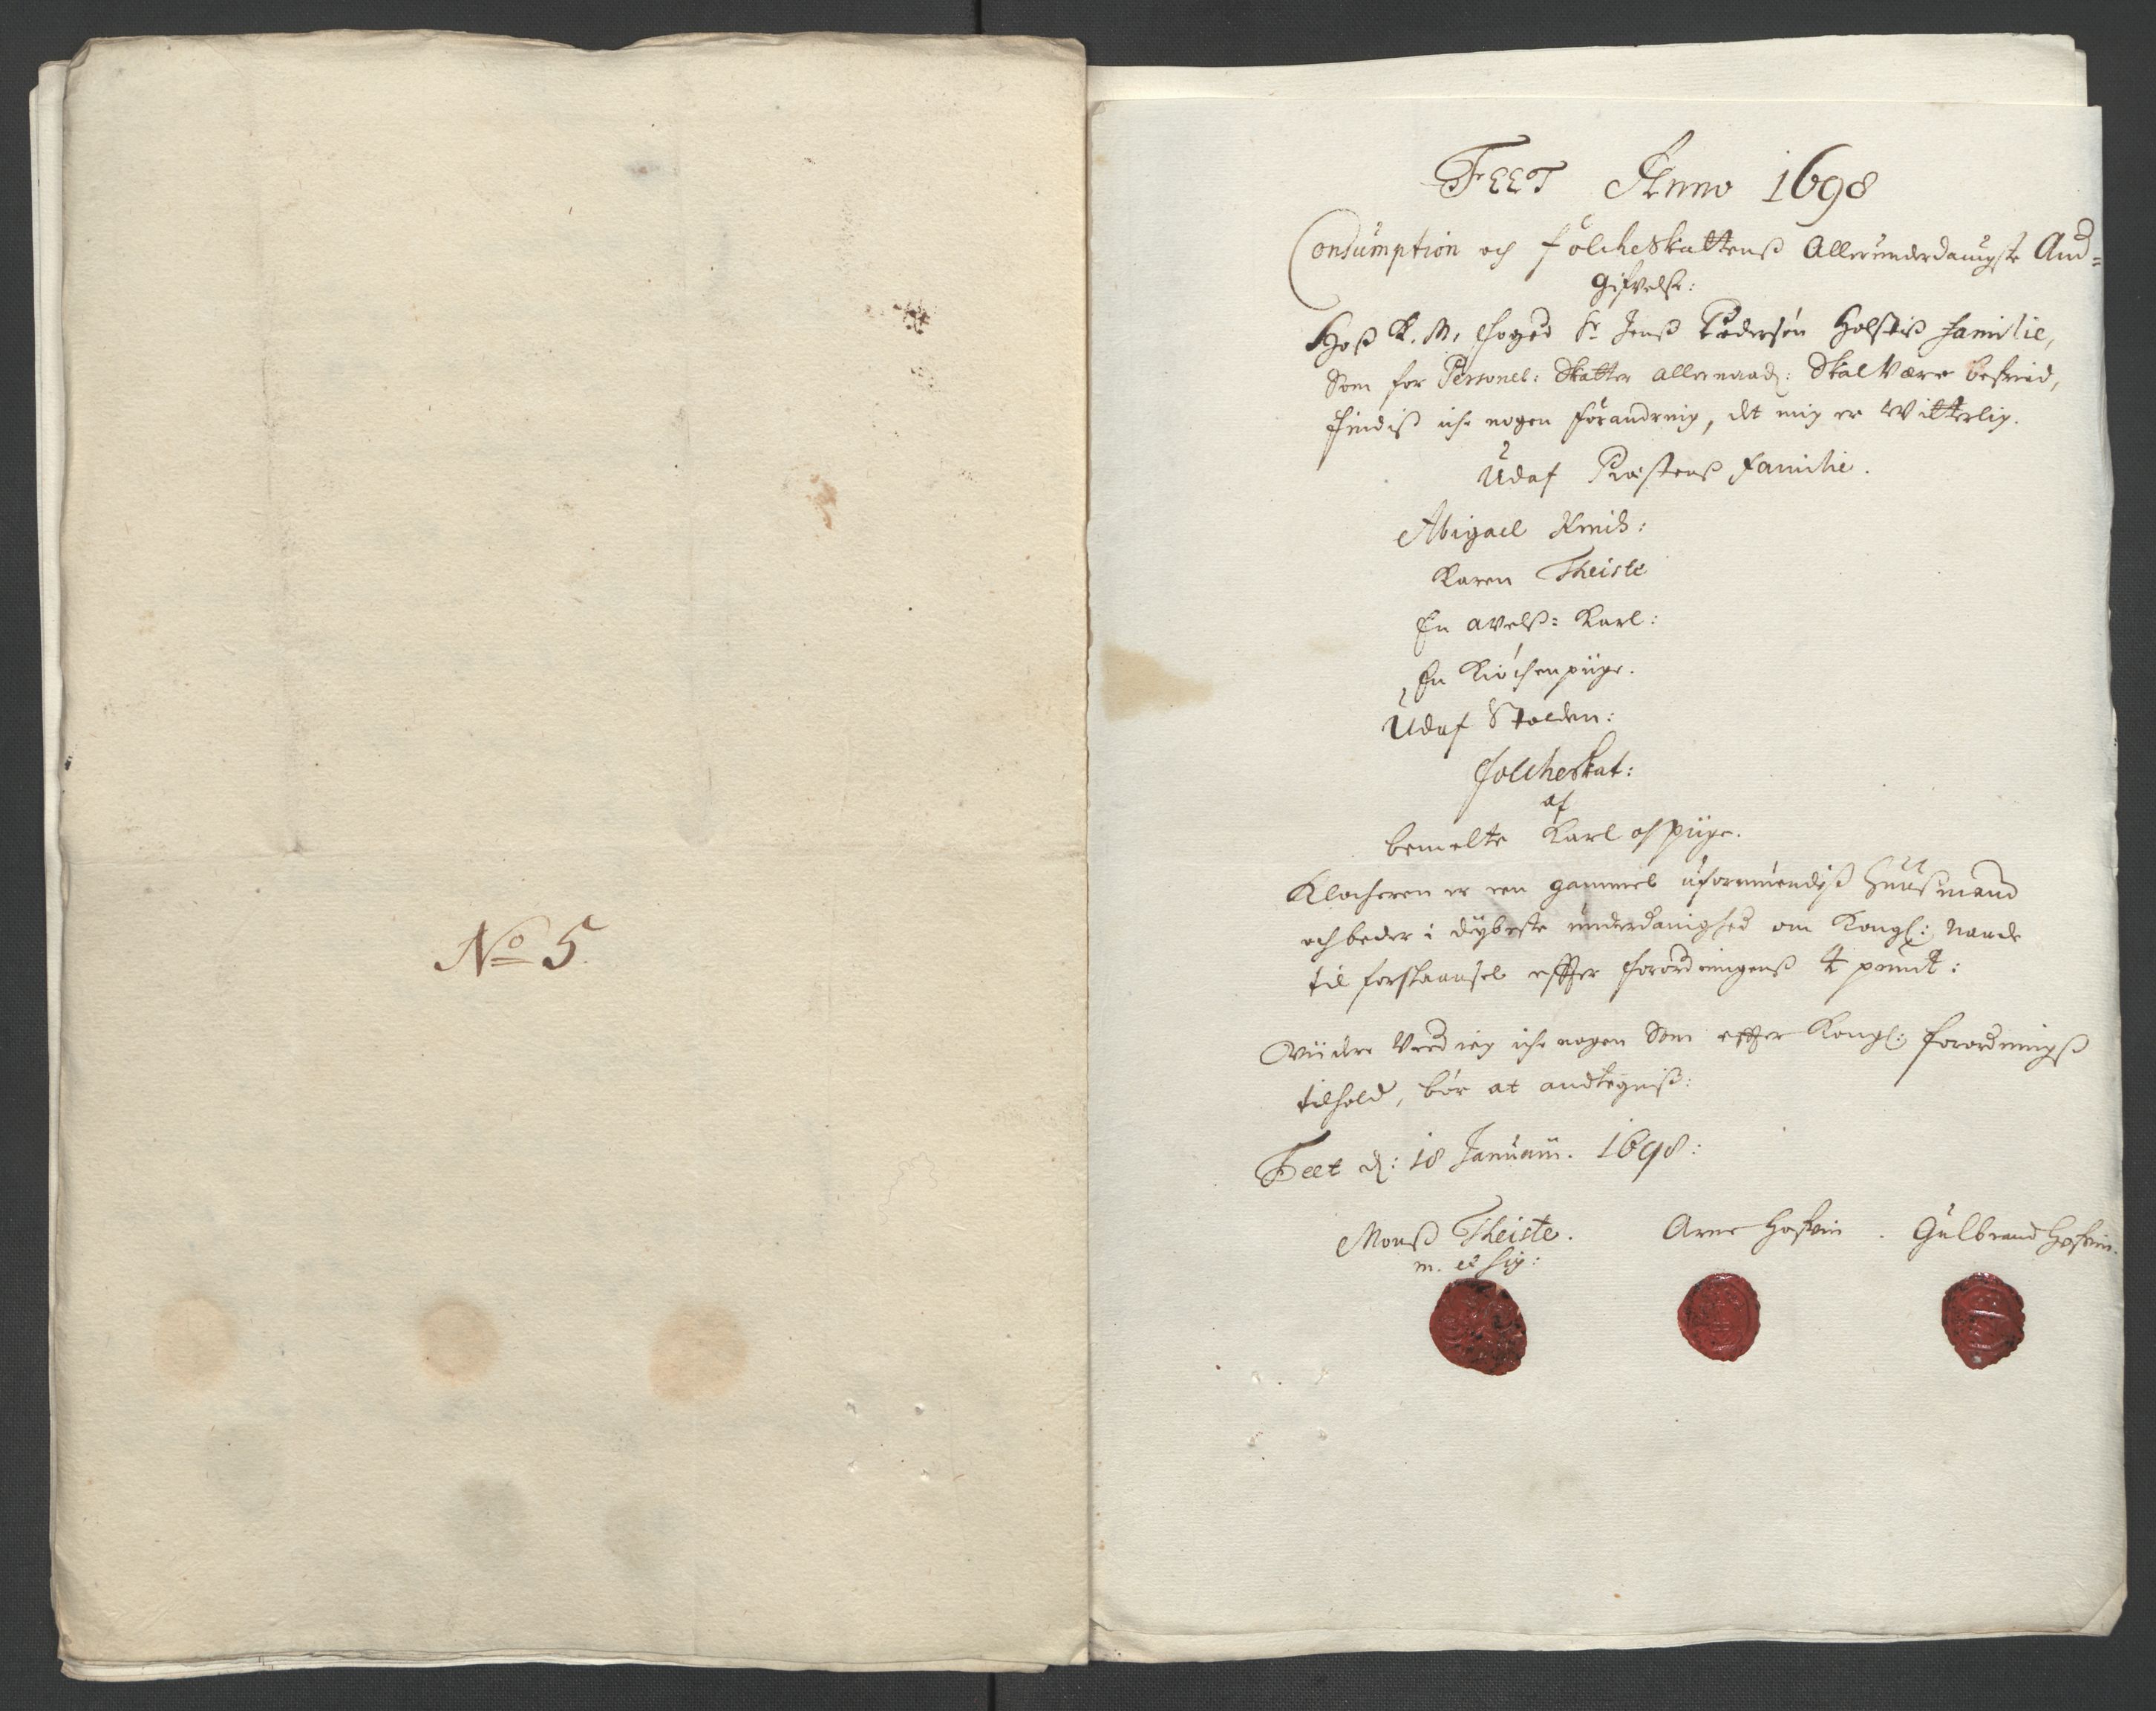 No 5.
FEET Anno 1698
Consumption och folcheskattens Allerunderdanigste And=
gifvelse:
Hoß K. M. foged Sr Jenß Pedersøn Holstis familie,
Som for Personel: Skatter allernaad: Skal være befried,
findiß iche nogen forandring, det mig er Witterlig.
Udaf Præstenß familie.
Abigael
Karen Theiste
En avelß= Karl:
En Kiöchenpiige.
Udaf Stalden:
folcheskat:
af
bemelte Karl och Piige.
Klocheren er een gammel uformuendiß Huusmand
och beder i dÿbeste underdanighed om Kongl: Naade
til forskaansel effter forordningenß 4 punct:
Viidere Veed ieg iche nogen Som effter Kongl: forordningß
tilhold, bör at andtegniß:
Feet d: 18 Januarii. 1698:
Monß Theiste. Arne Hofvin. Gulbrand Hofvin.
m. et sig: